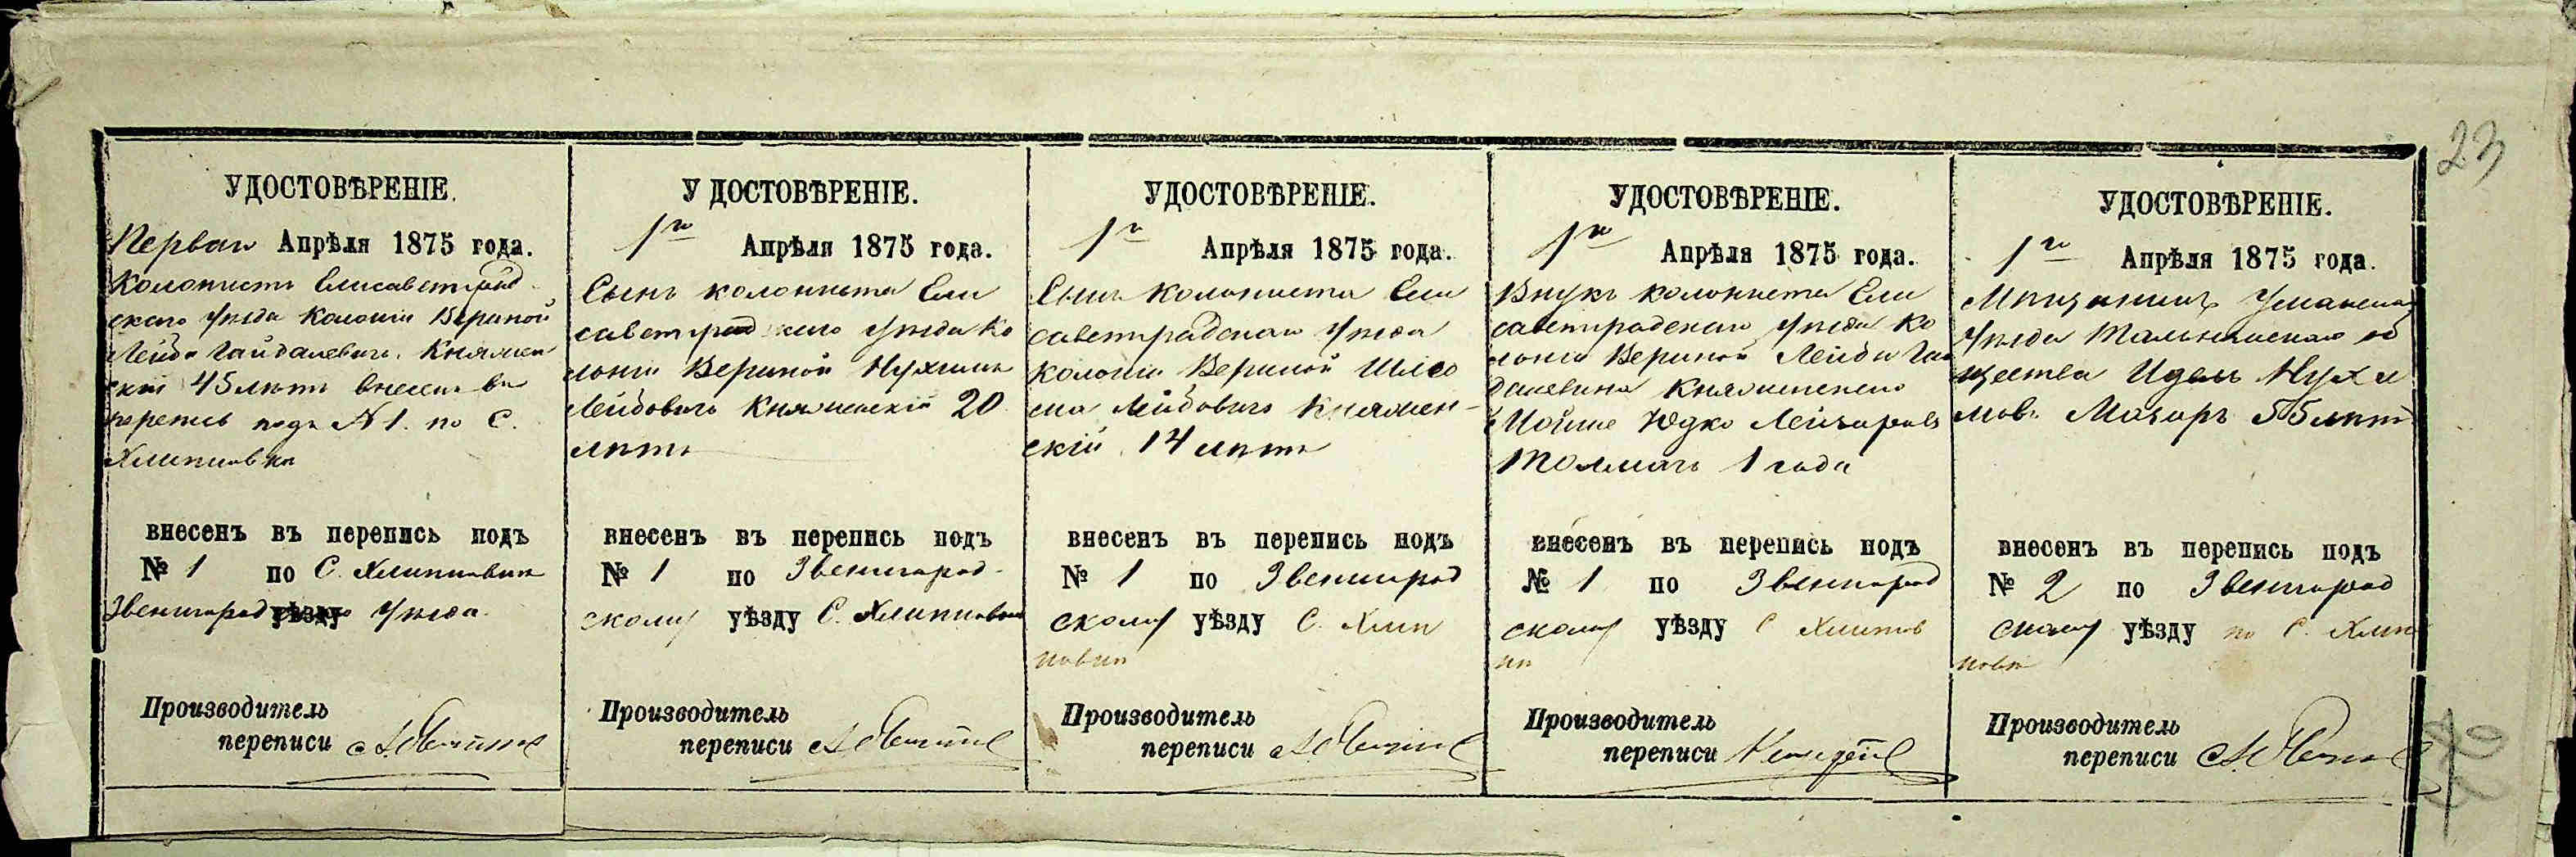 23
УДОСТОВѢРЕНІЕ.
Перваго Апрѣля 1875 года.
Колонистъ Елисаветград-
скаго уѣзда колоніи Вериной
Лейба Гайдалевичъ Княжен
скій 45 лѣтъ внесенъ въ
перепись подъ № 1. по С.
Хлиповка
внесенъ въ перепись подъ
№ 1 по С. Хлиповки
Звенигородскаго уѣзду уѣзда
Производитель
переписи
УДОСТОВѢРЕНІЕ.
1го Апрѣля 1875 года.
Сынъ колониста Ели
саветградскаго уѣзда ко
лоніи Вериной Нухимъ
Лейбовичъ Княженскій 20
лѣтъ
внесенъ въ перепись подъ
№ 1 по Звенигород-
скому уѣзду С. Хлиповки
Производитель
переписи
УДОСТОВѢРЕНІЕ.
1го Апрѣля 1875 года.
Сынъ колониста Ели
саветградскаго уѣзда
колоніи Вериной Шлео
ма Лейбовичъ Княжен-
скій 14 лѣтъ
внесенъ въ перепись подъ
№ 1 по Звенигород
скому уѣзду С. Хлип
новки
Производитель
переписи
УДОСТОВѢРЕНІЕ.
1го Апрѣля 1875 года.
Внукъ колониста Ели
саветградскаго уѣзда ко
лоніи Вериной Лейбы Гай
далевича Княженскаго
Мойше Юдко Лейзоровъ
Толмачъ 1 года
внесенъ въ перепись подъ
№ 1 по Звенигород
скому уѣзду С Хлипов
ки
Производитель
переписи
УДОСТОВѢРЕНІЕ.
1го Апрѣля 1875 года.
Мѣщанинъ Уманскаго
уѣзда Тальянскаго об
щества Идель Нухи
мовъ Мазуръ 55 лѣтъ
внесенъ въ перепись подъ
№ 2 по Звенигород
скому уѣзду по С. Хлип
новки
Производитель
переписи